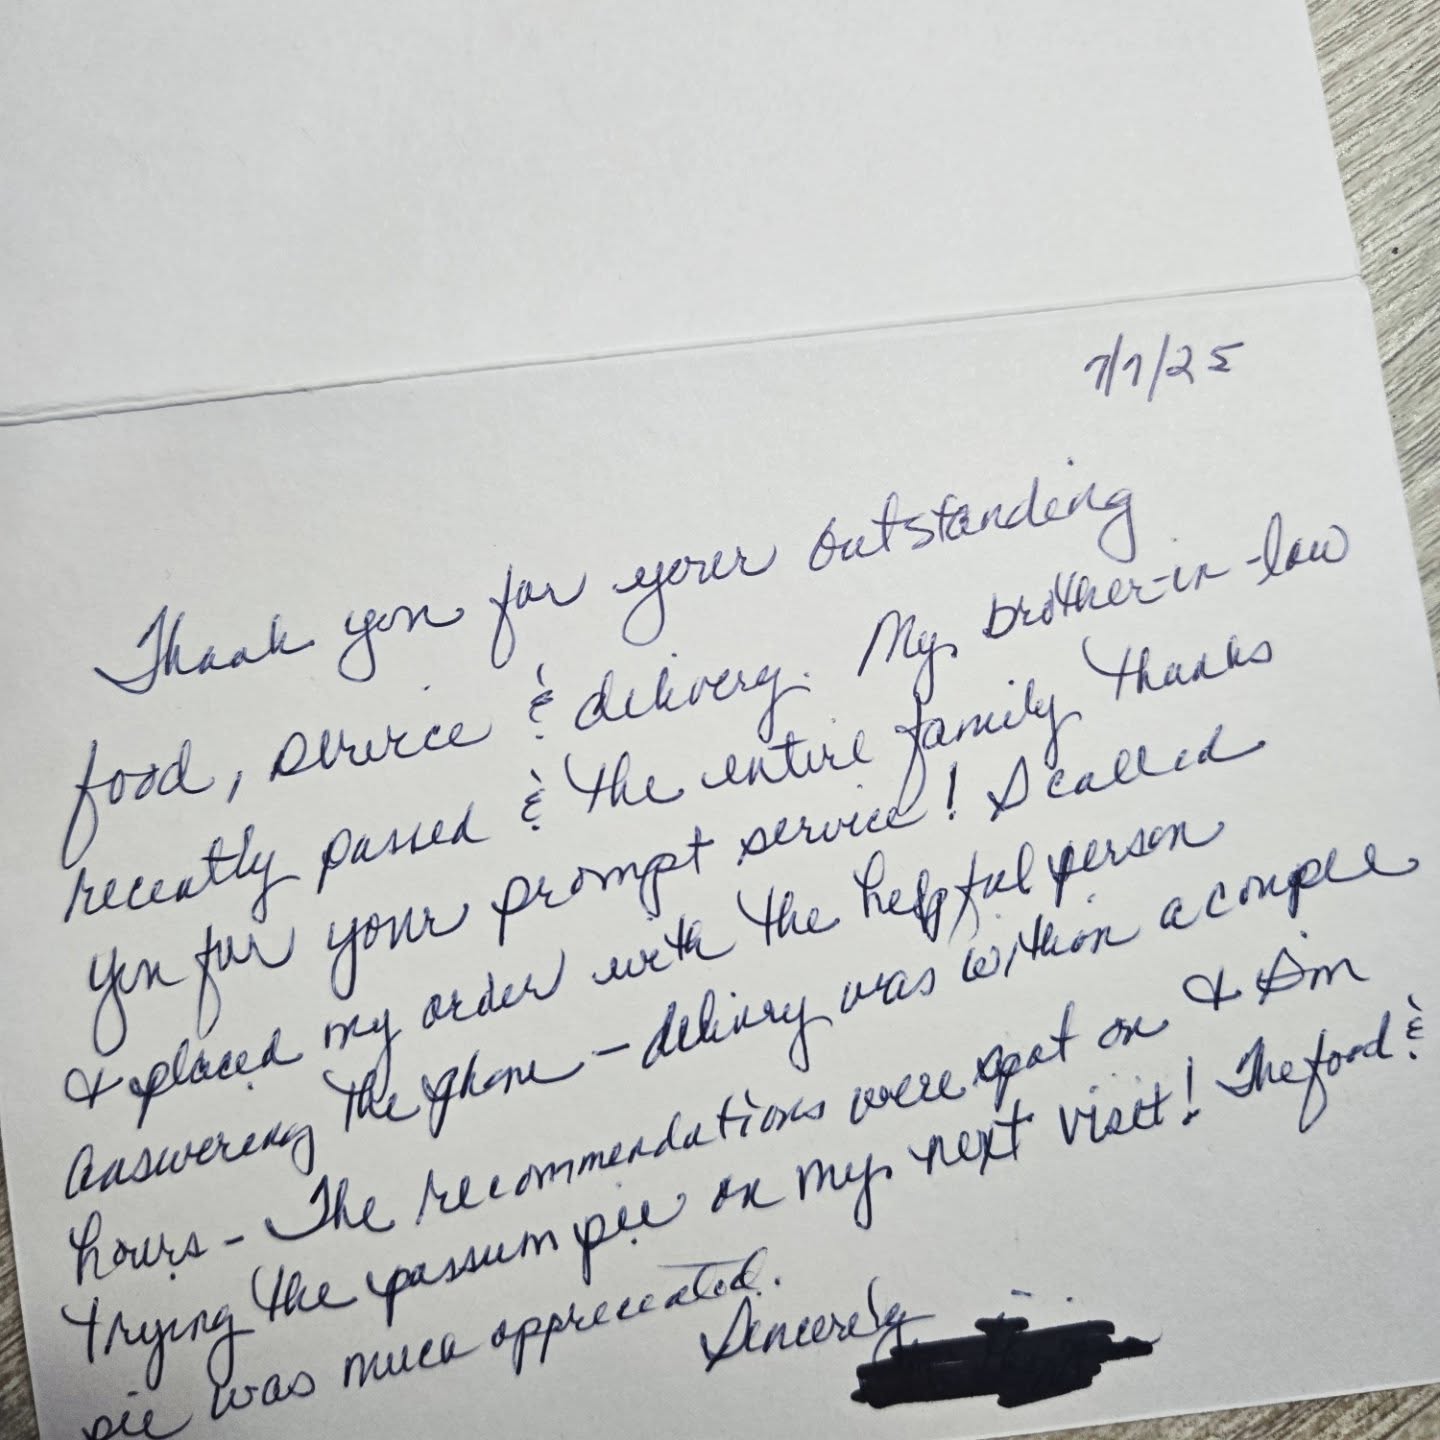 7/7/25
Thank you for your outstanding
food, service & delivery. My brother-in-law
recently passed & the entire family thanks
you for your prompt service! I called
& placed my order with the helpful person
answering the phone - delivery was within a couple
hours - The recommendations were spot on & I'm
trying the possum pie on my next visit! The food &
pie was much appreciated.
Sincerely